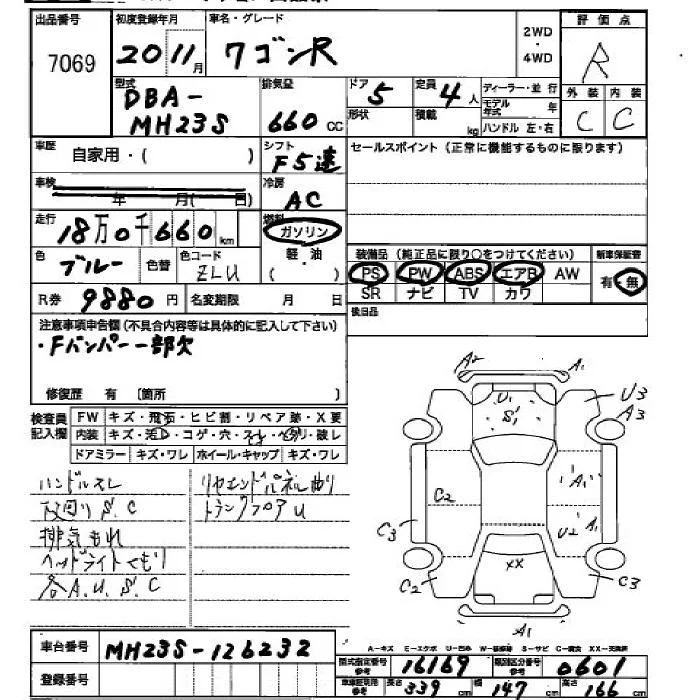 出品番号 初度登録年月 車名・グレード 評価点
7069 20 11月 ワゴンR 2WD・4WD R
型式 排気量 ドア 定員 ディーラー・並行 外装 内装
DBA-MH23S 660cc 5 4人 モデル年式 年 C C
形状 積載 kg ハンドル 左・右
車歴 自家用・( ) シフト F5速 セールスポイント(正常に機能するものに限ります)
車検 年 月( 日) 冷房 AC
走行 18万0千660km 燃料 ガソリン
色 ブルー 色替 色コード ZLU 軽・油 ( )
装備品(純正品に限り○をつけてください) 新車保証書
PS PW ABS エアB AW 有・無
SR ナビ TV カワ
R券 9880円 名変期限 月 日 後日品
注意事項申告欄(不具合内容等は具体的に記入して下さい)
・Fバンパー一部欠
修復歴 有 [箇所 ]
検査員記入欄 FW キズ・飛石・ヒビ割・リペア跡・X要
内装 キズ・汚れ・コゲ・穴・スレ・ヘタリ・破レ
ドアミラー キズ・ワレ ホイール・キャップ キズ・ワレ
ハンドルスレ リヤエンドパネル曲り
下回りS.C トランクフロアU
排気もれ
ヘッドライトくもり
各A.U.S.C
A2 A1
U1 S1 U3
A3
A1
C2
C3 U2 A1
XX
C2 C3
A1
A-キズ E-エクボ U-凹み W-板修跡 S-サビ C-腐食 XX-交換済
車台番号 MH23S-126232
登録番号
型式指定番号 参考 16169 類別区分番号 参考 0601
車車証現用 参考 長さ 339cm 幅 147cm 高さ 166cm